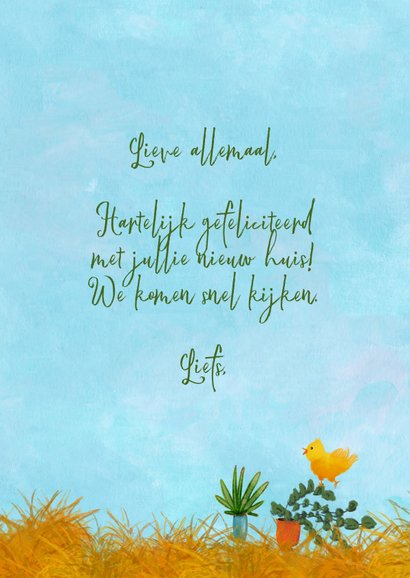 Lieve allemaal,
Hartelijk gefeliciteerd
met jullie nieuw huis!
We komen snel kijken.
Liefs,